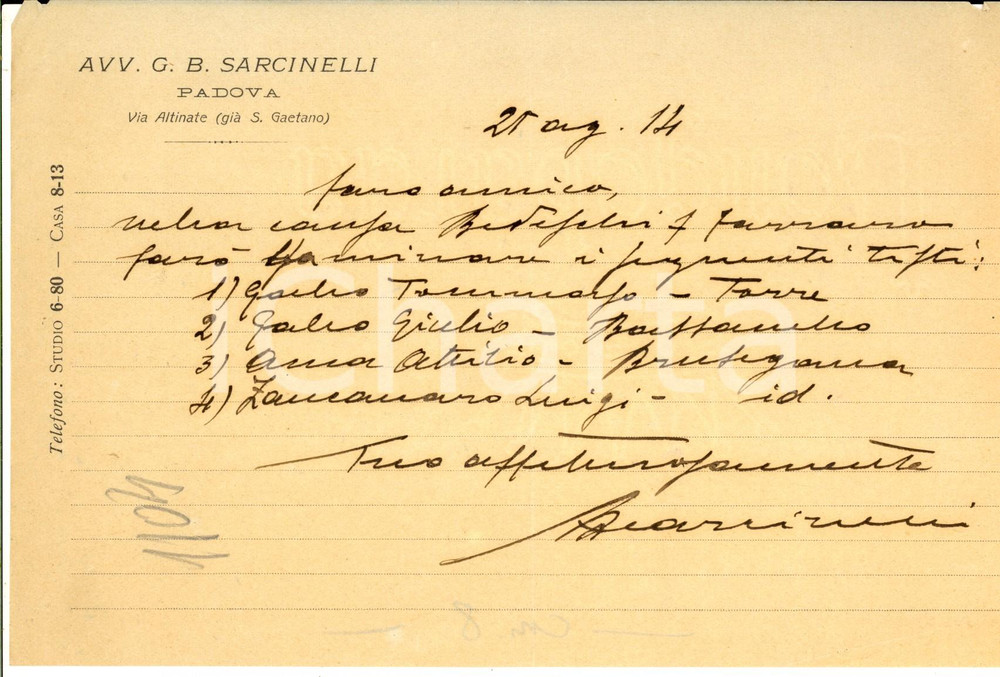 AVV. G. B. SARCINELLI
PADOVA
Via Altinate (già S. Gaetano)
Telefono: STUDIO 6-80 — CASA 8-13
25 ag. 14
Caro amico,
nella causa Bedeschi / Farraro
farò esaminare i seguenti testi:
1) Tommaso - Torre
2) Giulio -
3) Attilio - Brusegana
4) Zancanaro Luigi - id.
Tuo affettuosamente
Sarcinelli
1104
iCharta